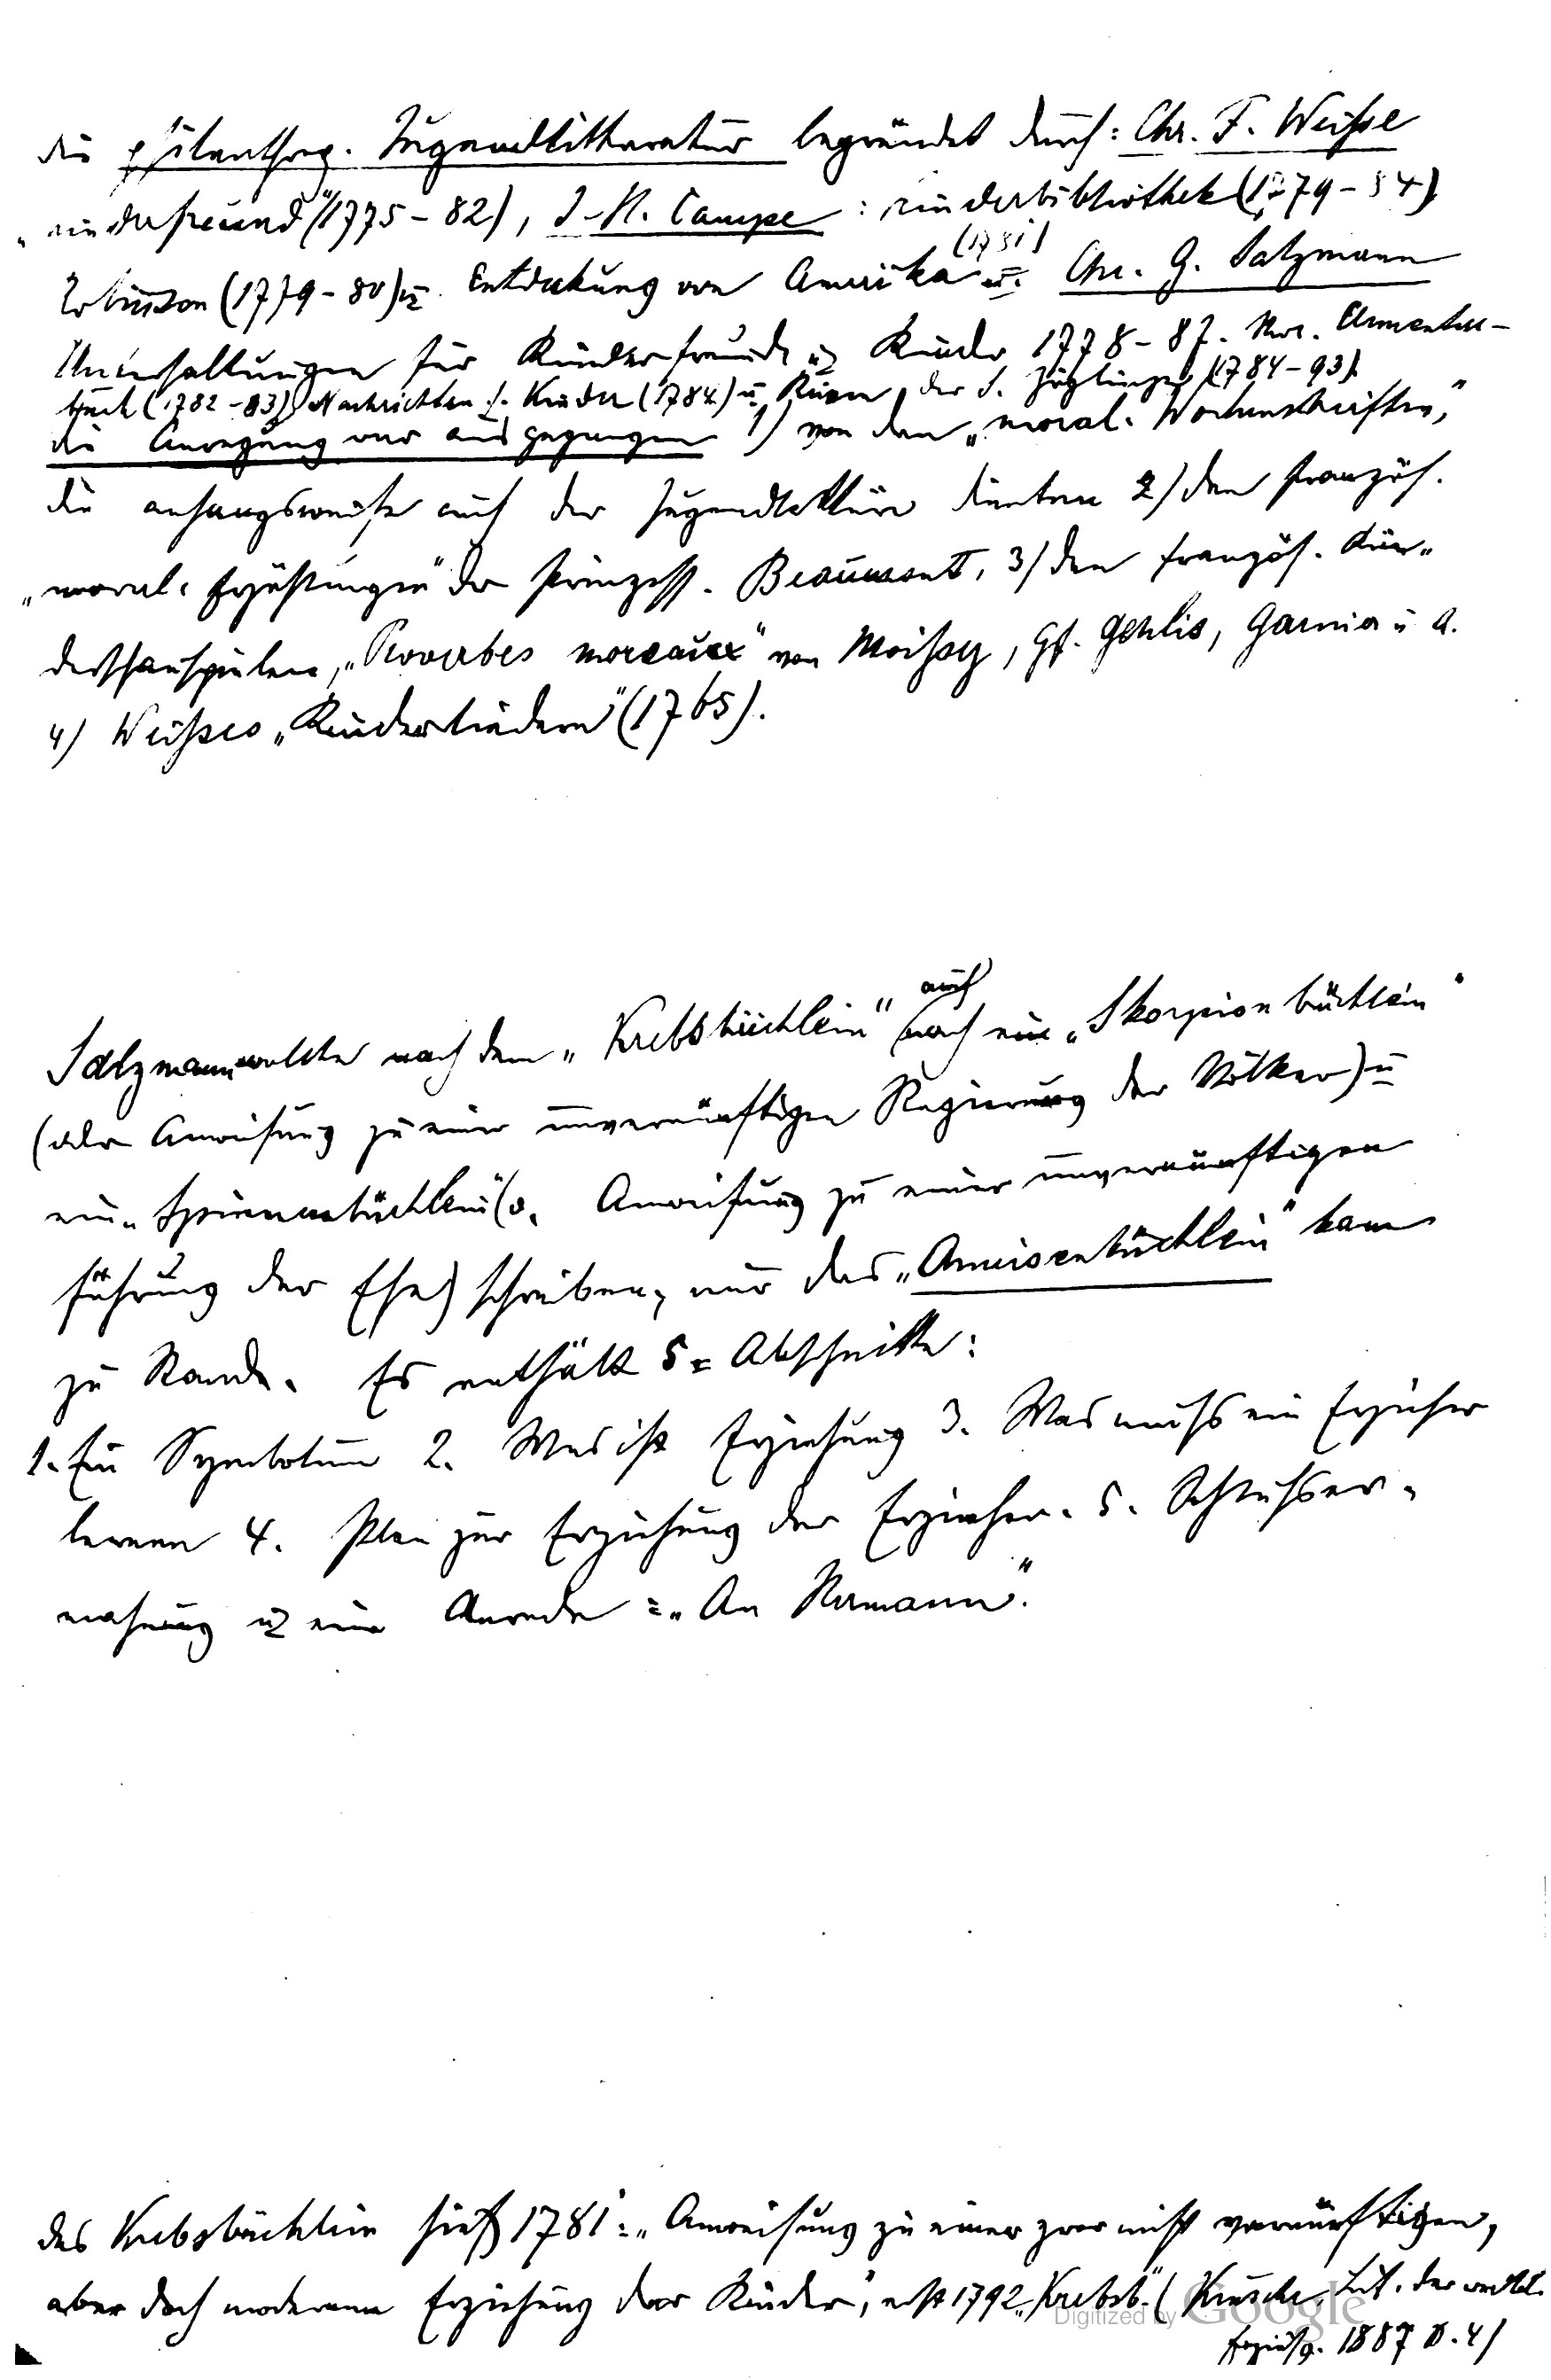 die philanthrop. Jugendlitteratur begründet durch: Chr. F. Weiße
„Kinderfreund“ (1775-82), J. H. Campe: Kinderbibliothek (1779-84)
Robinson (1779-80) u. Entdeckung von Amerika (1781) u. Chr. G. Salzmann
Unterhaltungen für Kinder u. Kinderfreunde 1778-87. Mor. Elementar-
buch (1782-83) Nachrichten f. Kinder (1784) u. Reisen der S. Zöglinge (1784-93).
die Anregung war ausgegangen 1) von den „moral. Wochenschriften“,
die anfangsweise auch der Jugendlektüre dienten 2) den französ.
„moral. Erzählungen“ der Prinzess. Beaumont, 3) den französ. Kin-
derschauspielen, „Proverbes moreaux“ von Moissy, Gf. Genlis, Garnier u. A.
4) Weißes „Kinderliedern“ (1765).
Salzmann wollte nach dem „Krebsbüchlein“ auch noch ein „Skorpionbüchlein“
(oder Anweisung zu einer unvernünftigen Regierung der Völker) u.
ein „Spinnenbüchlein“ (o. Anweisung zu einer unvernünftigen
Führung der Ehe) schreiben, nur das „Ameisenbüchlein“ kam
zu Stande. Es enthält 5 Abschnitte:
1. Ein Symbolum 2. Was ist Erziehung 3. Was muß ein Erzieher
lernen 4. Plan zur Erziehung der Erzieher. 5. Schlußer-
mahnung u. eine Anrede: „An Hermann“.
das Krebsbüchlein hieß 1781: „Anweisung zu einer zwar nicht vernünftigen,
aber doch modernen Erziehung der Kinder“, erst 1792 „Krebsb.“ ( Lit. der weibl.
Erziehg. 1887 S. 4)
Digitized by Google